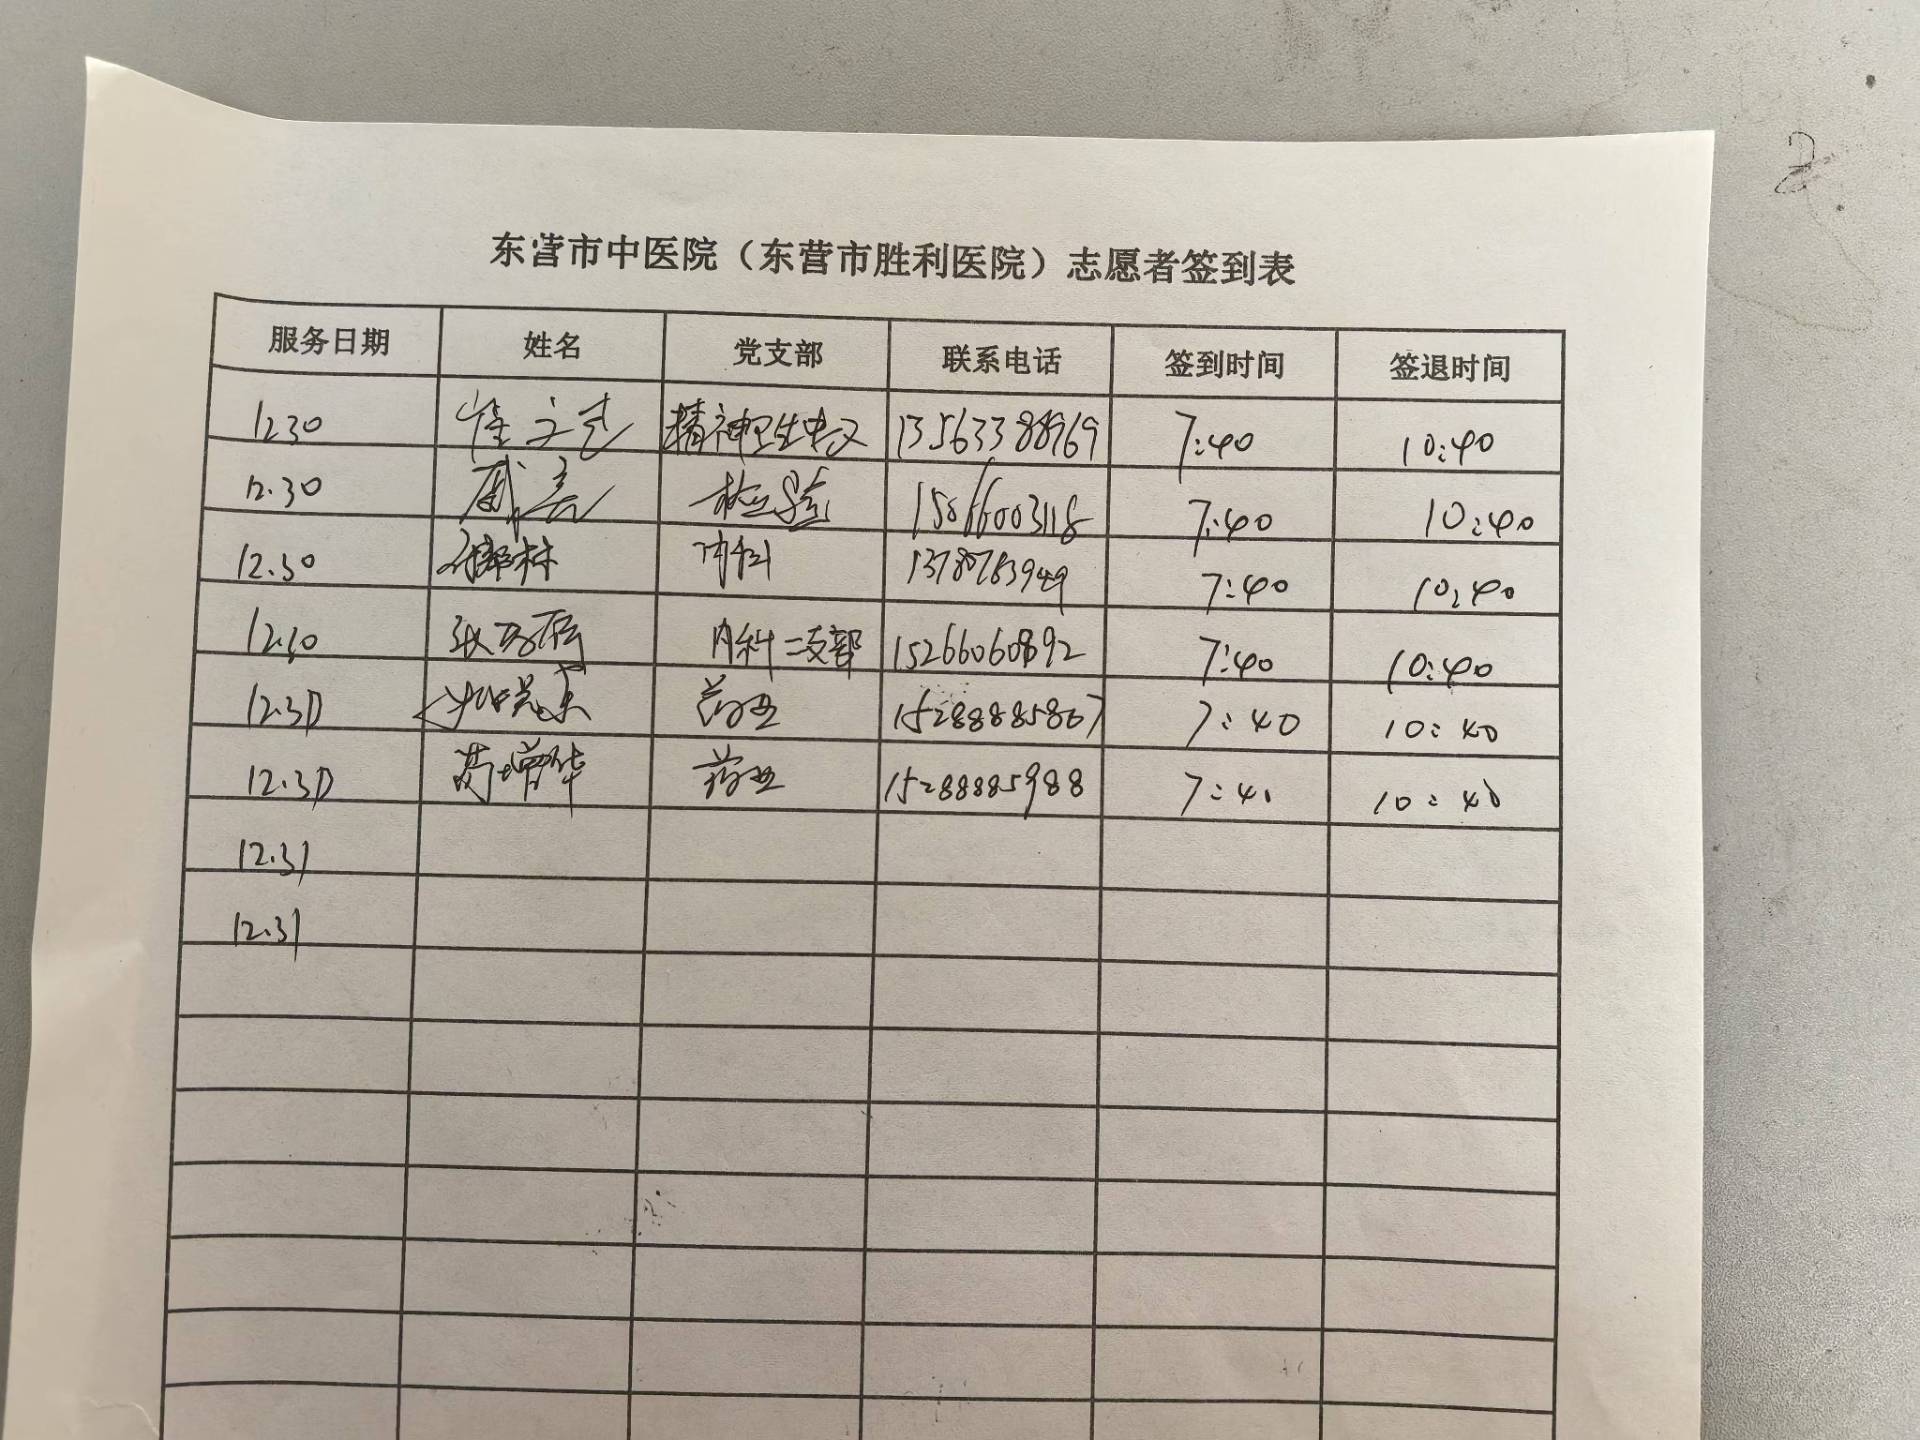 东营市中医院（东营市胜利医院）志愿者签到表
服务日期 姓名 党支部 联系电话 签到时间 签退时间
12.30 崔文艺 精神卫生中心 13563388969 7:40 10:40
12.30 戚亮 检验 15866003118 7:40 10:40
12.30 林 内科 7:40 10:40
12.30 张 内科二支部 15266060892 7:40 10:40
12.30 药业 15288885867 7:40 10:40
12.30 增华 药业 15288885988 7:40 10:40
12.31
12.31